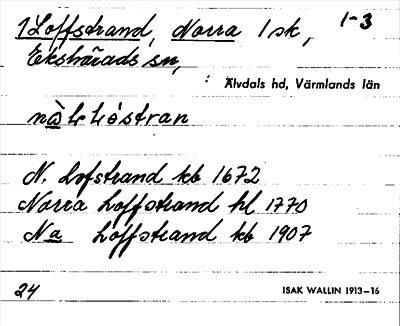 1 Loffstrand, Norra 1 sk, 1-3
Ekshärads sn,
Älvdals hd, Värmlands län
N. Lofstrand kb 1672
Norra Loffstrand hl 1770
Na Loffstrand kb 1907
24
ISAK WALLIN 1913-16